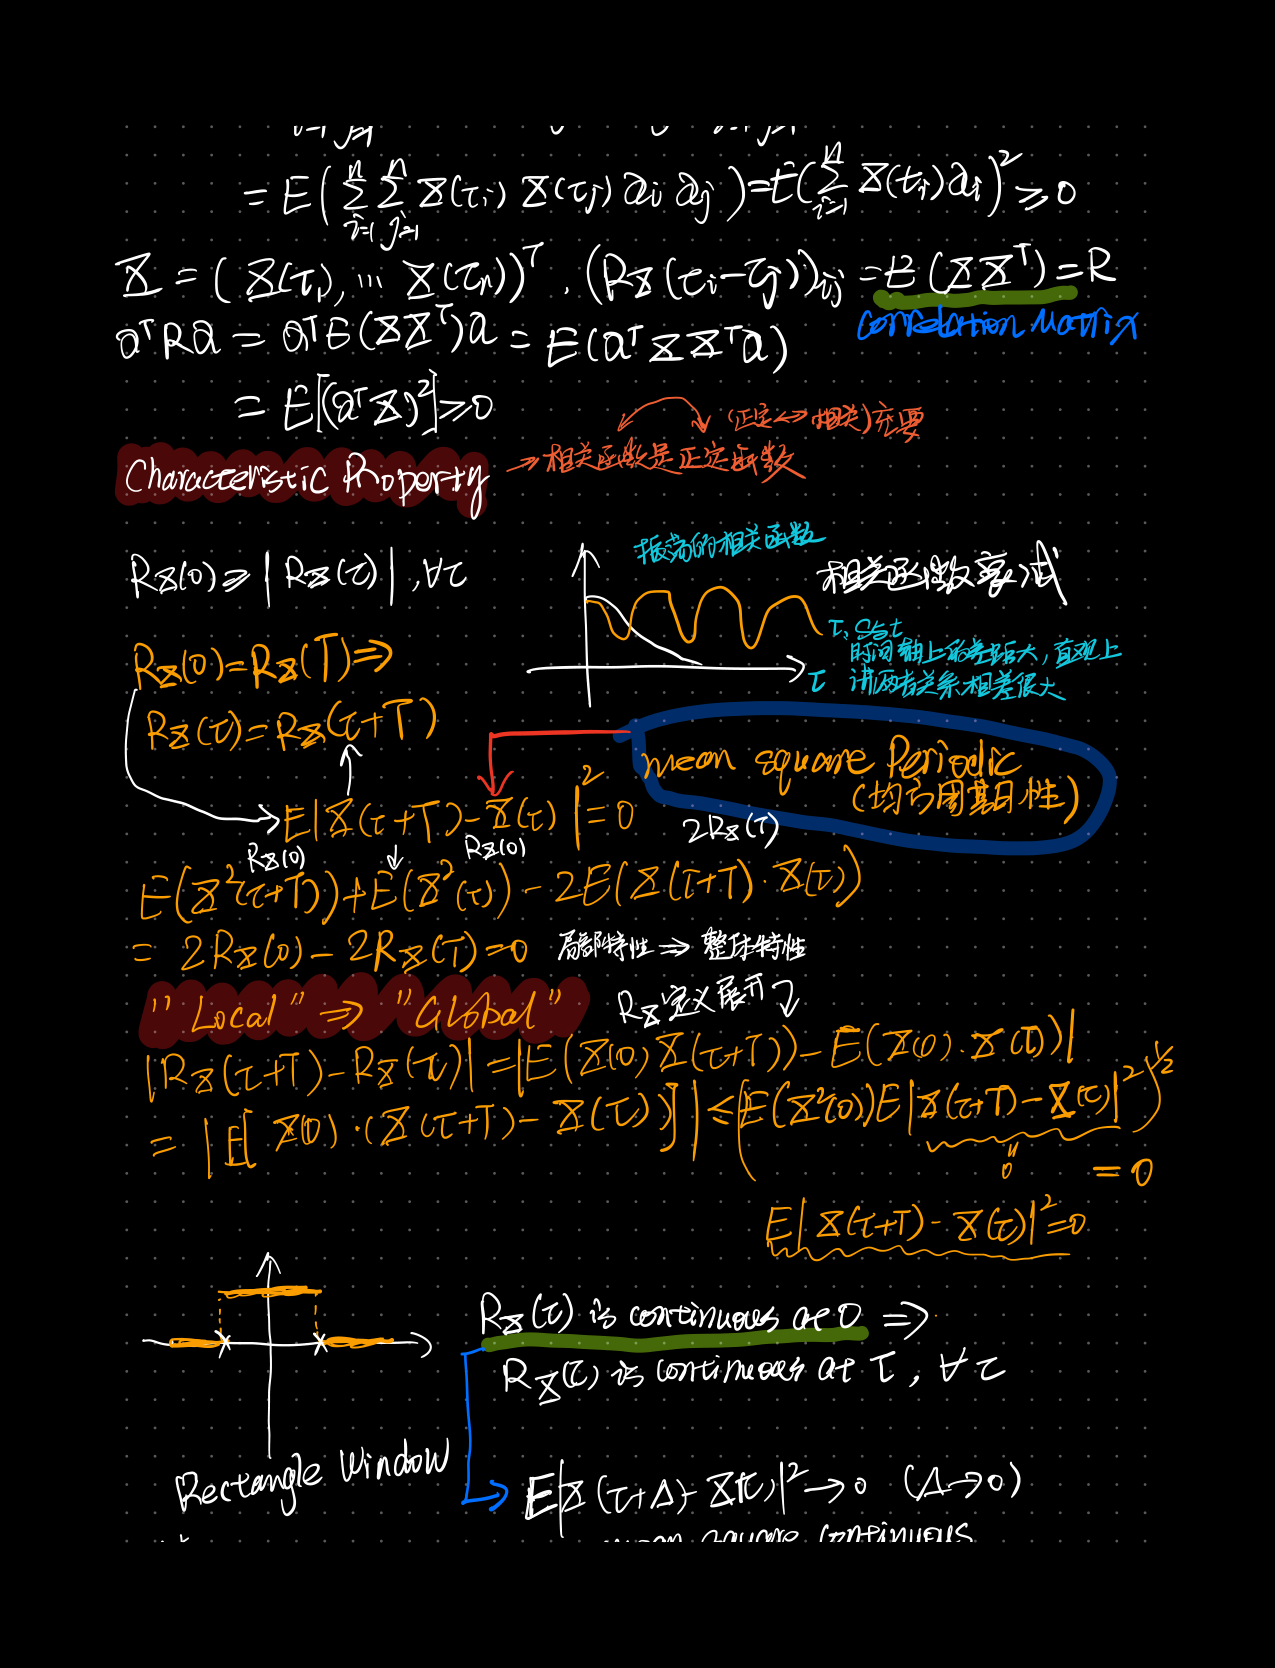 = E(∑_{i=1}^{n} ∑_{j=1}^{n} X(τ_i) X(τ_j) a_i a_j) = E(∑_{i=1}^{n} X(t_i) a_i)² ≥ 0
X = (X(τ_1), ... X(τ_n))^T. (R_X(τ_i - τ_j))_{ij} = E(XX^T) = R
Correlation Matrix
a^T R a = a^T E(XX^T) a = E(a^T X X^T a)
= E[(a^T X)²] ≥ 0
(正定 ↔ 相关) 充要
Characteristic Property → 相关函数是正定函数
振荡的相关函数
R_X(0) ≥ |R_X(τ)|, ∀τ
相关函数衰减
τ, s.t
时间轴上的差距大, 直观上
τ 讲两者关系相差很大
R_X(0) = R_X(T) ⇒
R_X(τ) = R_X(τ+T)
mean square Periodic
(均方周期性)
E|X(τ+T) - X(τ)|² = 0
R_X(0) R_X(0) 2R_X(T)
E(X²(τ+T)) + E(X²(τ)) - 2E(X(τ+T)·X(τ))
= 2R_X(0) - 2R_X(T) = 0 局部特性 ⇒ 整体特性
"Local" ⇒ "Global" R_X定义展开
|R_X(τ+T) - R_X(τ)| = |E(X(0) X(τ+T)) - E(X(0)·X(τ))|
= |E[X(0)·(X(τ+T) - X(τ))]| ≤ (E(X²(0)) E|X(τ+T) - X(τ)|²)^{1/2}
0 = 0
E|X(τ+T) - X(τ)|² = 0
R_X(τ) is continuous at 0 ⇒
R_X(τ) is continuous at τ, ∀τ
Rectangle Window
E|X(τ+Δ) - X(τ)|² → 0 (Δ→0)
mean square continuous